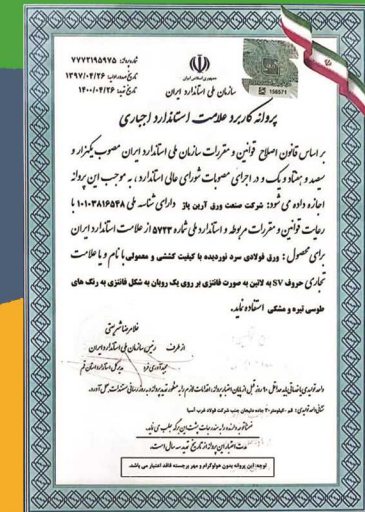 شماره پروانه: ۷۷۷۲۱۹۵۹۷۵
تاریخ صدور اولیه: ۱۳۹۷/۰۴/۲۶
تاریخ تمدید: ۱۴۰۰/۰۴/۲۶
جمهوری اسلامی ایران
سازمان ملی استاندارد ایران
156571
پروانه کاربرد علامت استاندارد اجباری
بر اساس قانون اصلاح قوانین و مقررات سازمان ملی استاندارد ایران مصوب یکهزار و
سیصد و هفتاد و یک و در اجرای مصوبات شورای عالی استاندارد، به موجب این پروانه
اجازه داده می شود: شرکت صنعت ورق آرین پاژ دارای شناسه ملی ۱۰۱۰۳۸۱۶۵۴۸ با
رعایت قوانین و مقررات مربوطه و استاندارد ملی شماره ۵۷۲۳ از علامت استاندارد ایران
برای محصول: ورق فولادی سرد نوردیده با کیفیت کششی و معمولی با نام و یا علامت
تجاری حروف SV به لاتین به صورت فانتزی بر روی یک روبان به شکل فانتزی به رنگ های
طوسی تیره و مشکی استفاده نماید.
غلامرضا شریعتی
از طرف رئیس سازمان ملی استاندارد ایران
مدیرکل استاندارد استان قم
واحد تولیدی/خدماتی باید حداقل ۹۰ روز قبل از پایان اعتبار پروانه، اقدامات لازم را به منظور تمدید پروانه و به روز رسانی مستندات به عمل آورد.
نشانی واحد تولیدی: قم -کیلومتر۲۰ جاده سلیمان جنب شرکت فولاد غرب آسیا
ضمناً توجه دارنده را به مندرجات پشت این برگه جلب می نماید.
مدت اعتبار این پروانه از تاریخ تمدید سه سال است.
توجه: این پروانه بدون هولوگرام و مهر برجسته فاقد اعتبار می باشد.